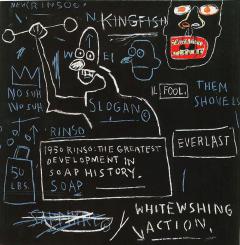 NEW RINSO©
N
KINGFISH
W E I
NO SUH
NO SUH
SLOGAN©
FOOL.
THEM
SHOVELS
RINSO
50
LBS.
1950 RINSO: THE GREATEST
DEVELOPMENT IN
SOAP HISTORY.
SOAP
EVERLAST
WHITEWSHING
ACTION.